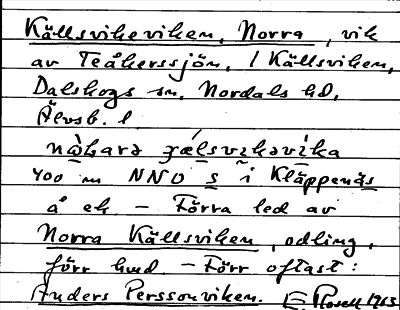 Källsvikeviken, Norra, vik
av Teåkerssjön, / Källsviken,
Dalskogs sn, Nordals hd,
Älvsb. l
400 m NNO s i Kläppenäs
å ek – Förra led av
Norra Källsviken, odling,
förr hmd. – Förr oftast:
Anders Perssonviken. E. Rosell 1963